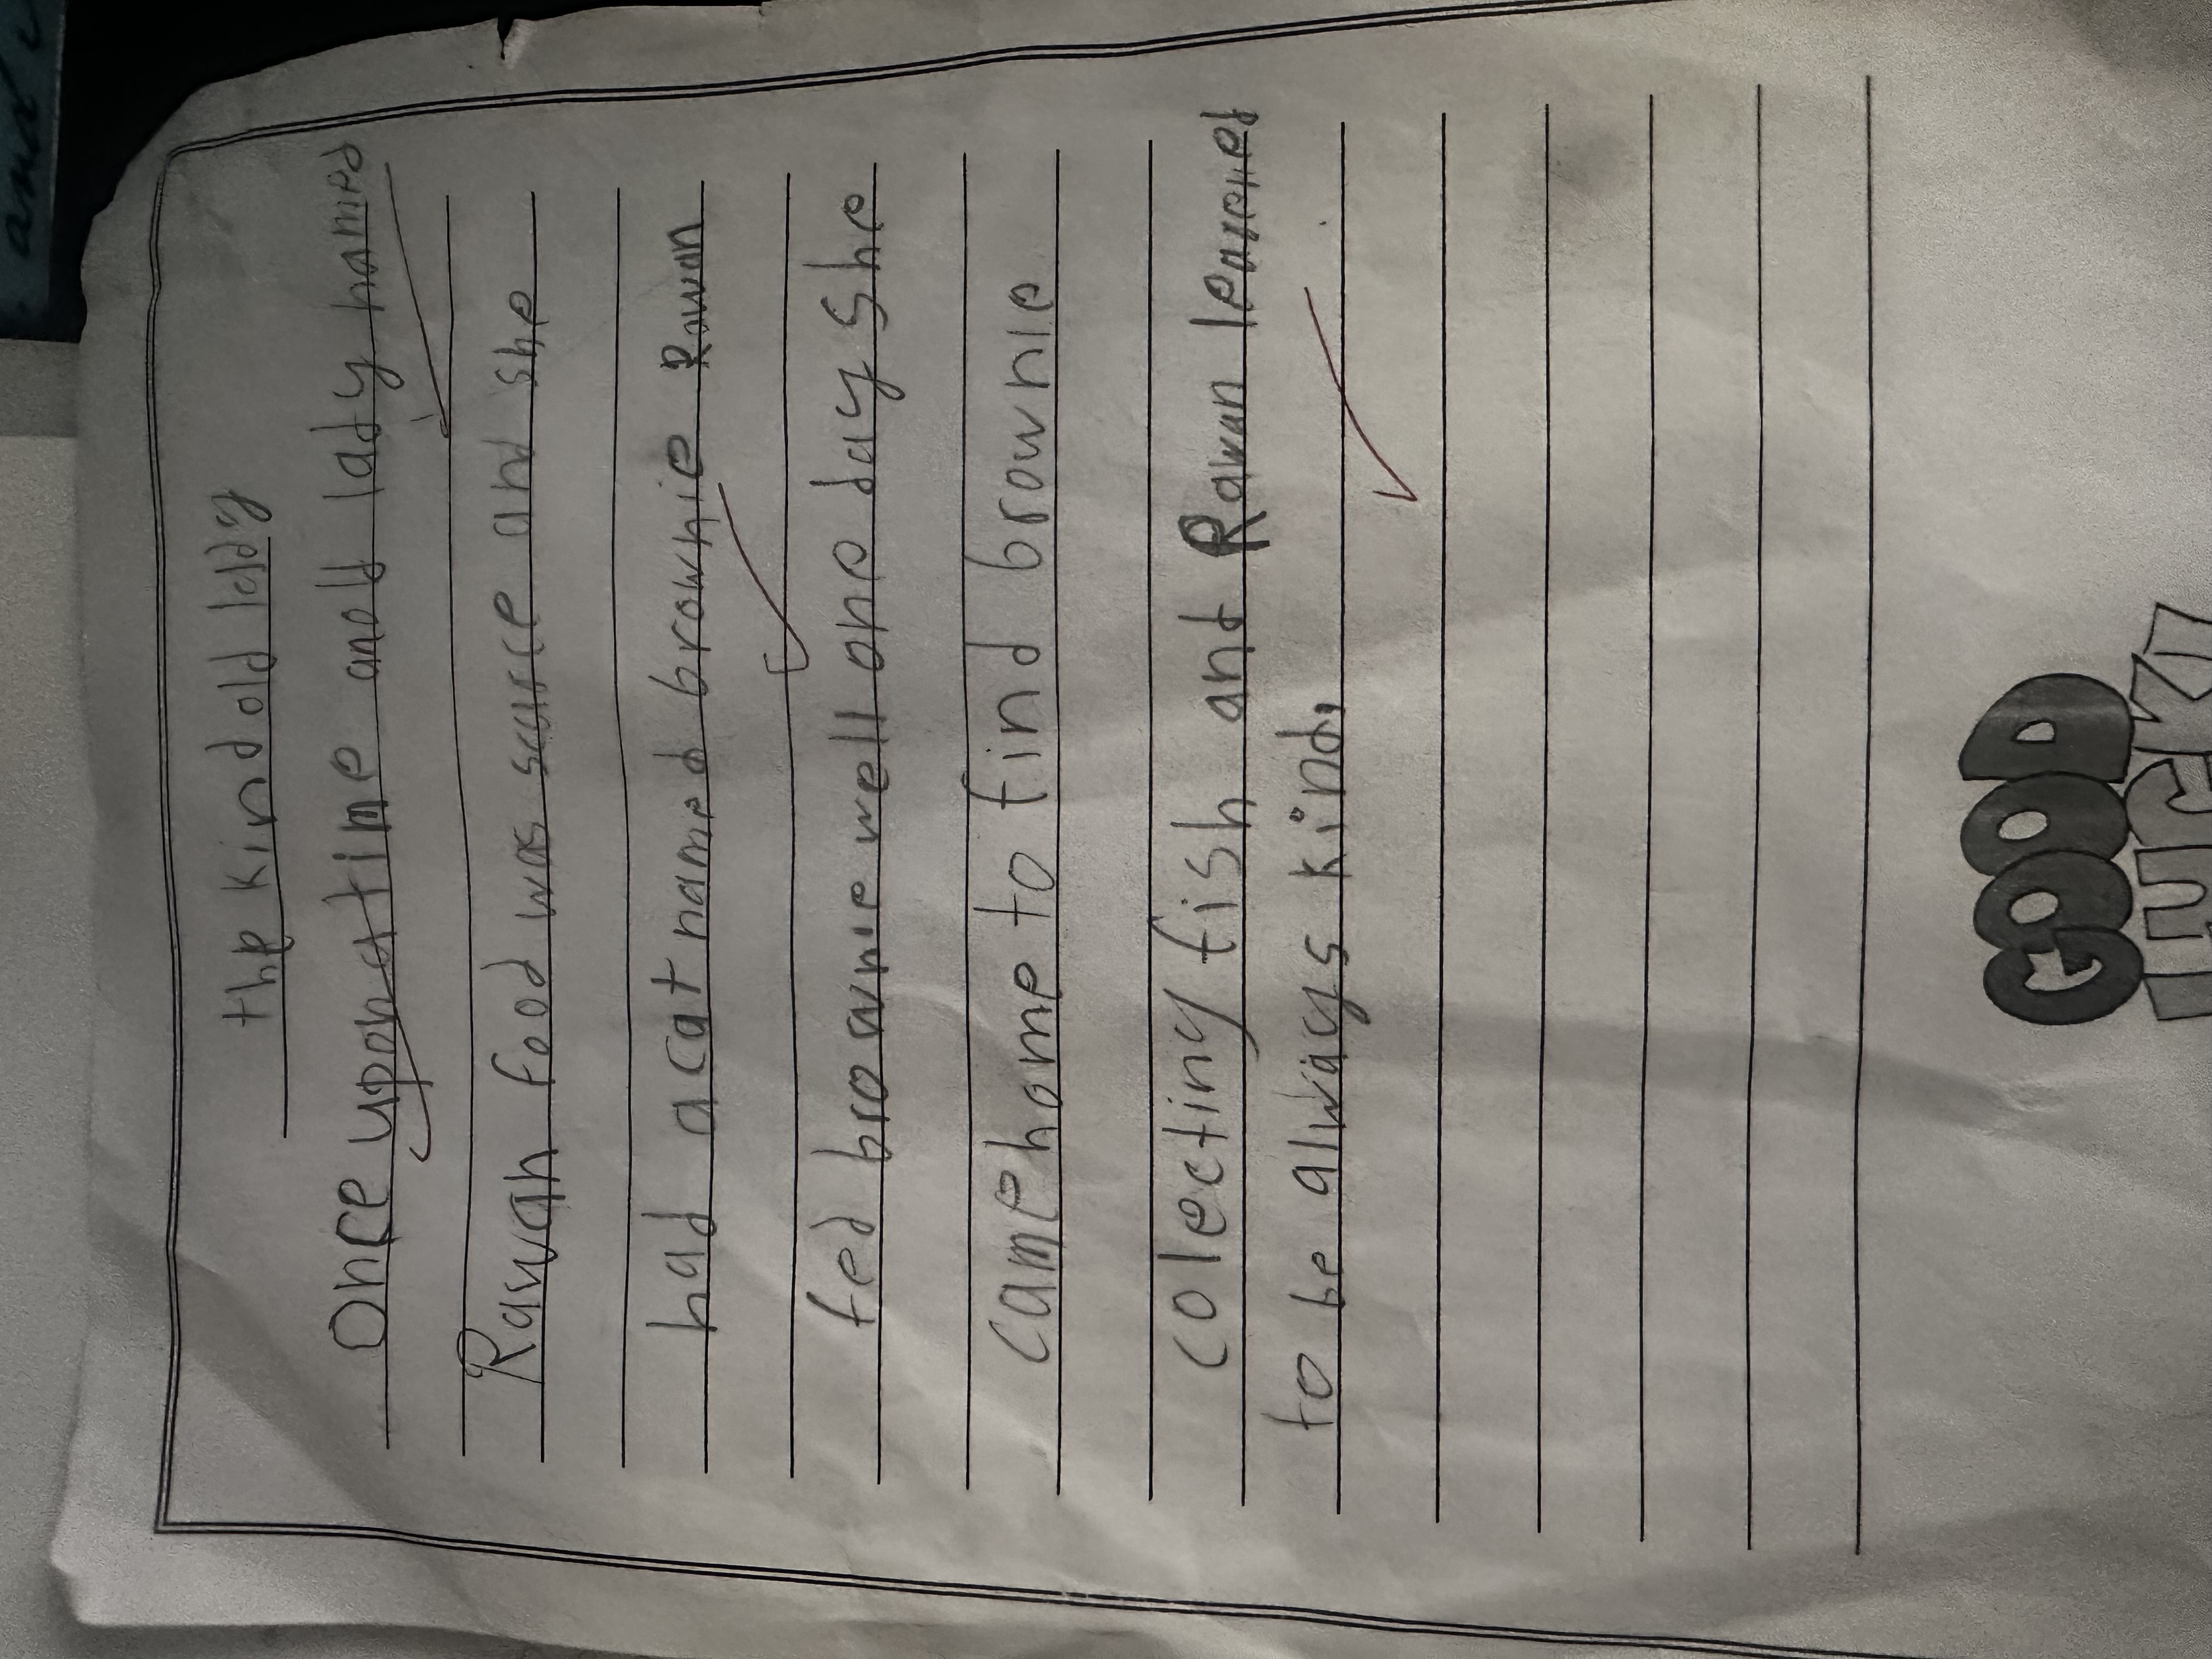 the kind old lady
Once upon a time an old lady named
Rawan food was scarce and she
had a cat named brownie Rawan
fed brownie well one day she
came home to find brownie
colecting fish and Rawan learned
to be always kind,
GOOD
LUCK!
and